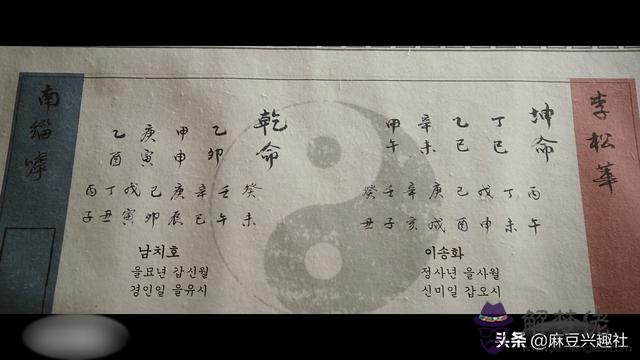 李松華
坤命
丁巳
乙巳
辛未
甲午
丙午
丁未
戊申
己酉
庚戌
辛亥
壬子
癸丑
이송화
정사년 을사월
신미일 갑오시
乾命
乙卯
甲申
庚寅
乙酉
癸未
壬午
辛巳
庚辰
己卯
戊寅
丁丑
丙子
남치호
을묘년 갑신월
경인일 을유시
南緇
解梦佬
头条 @麻豆兴趣社